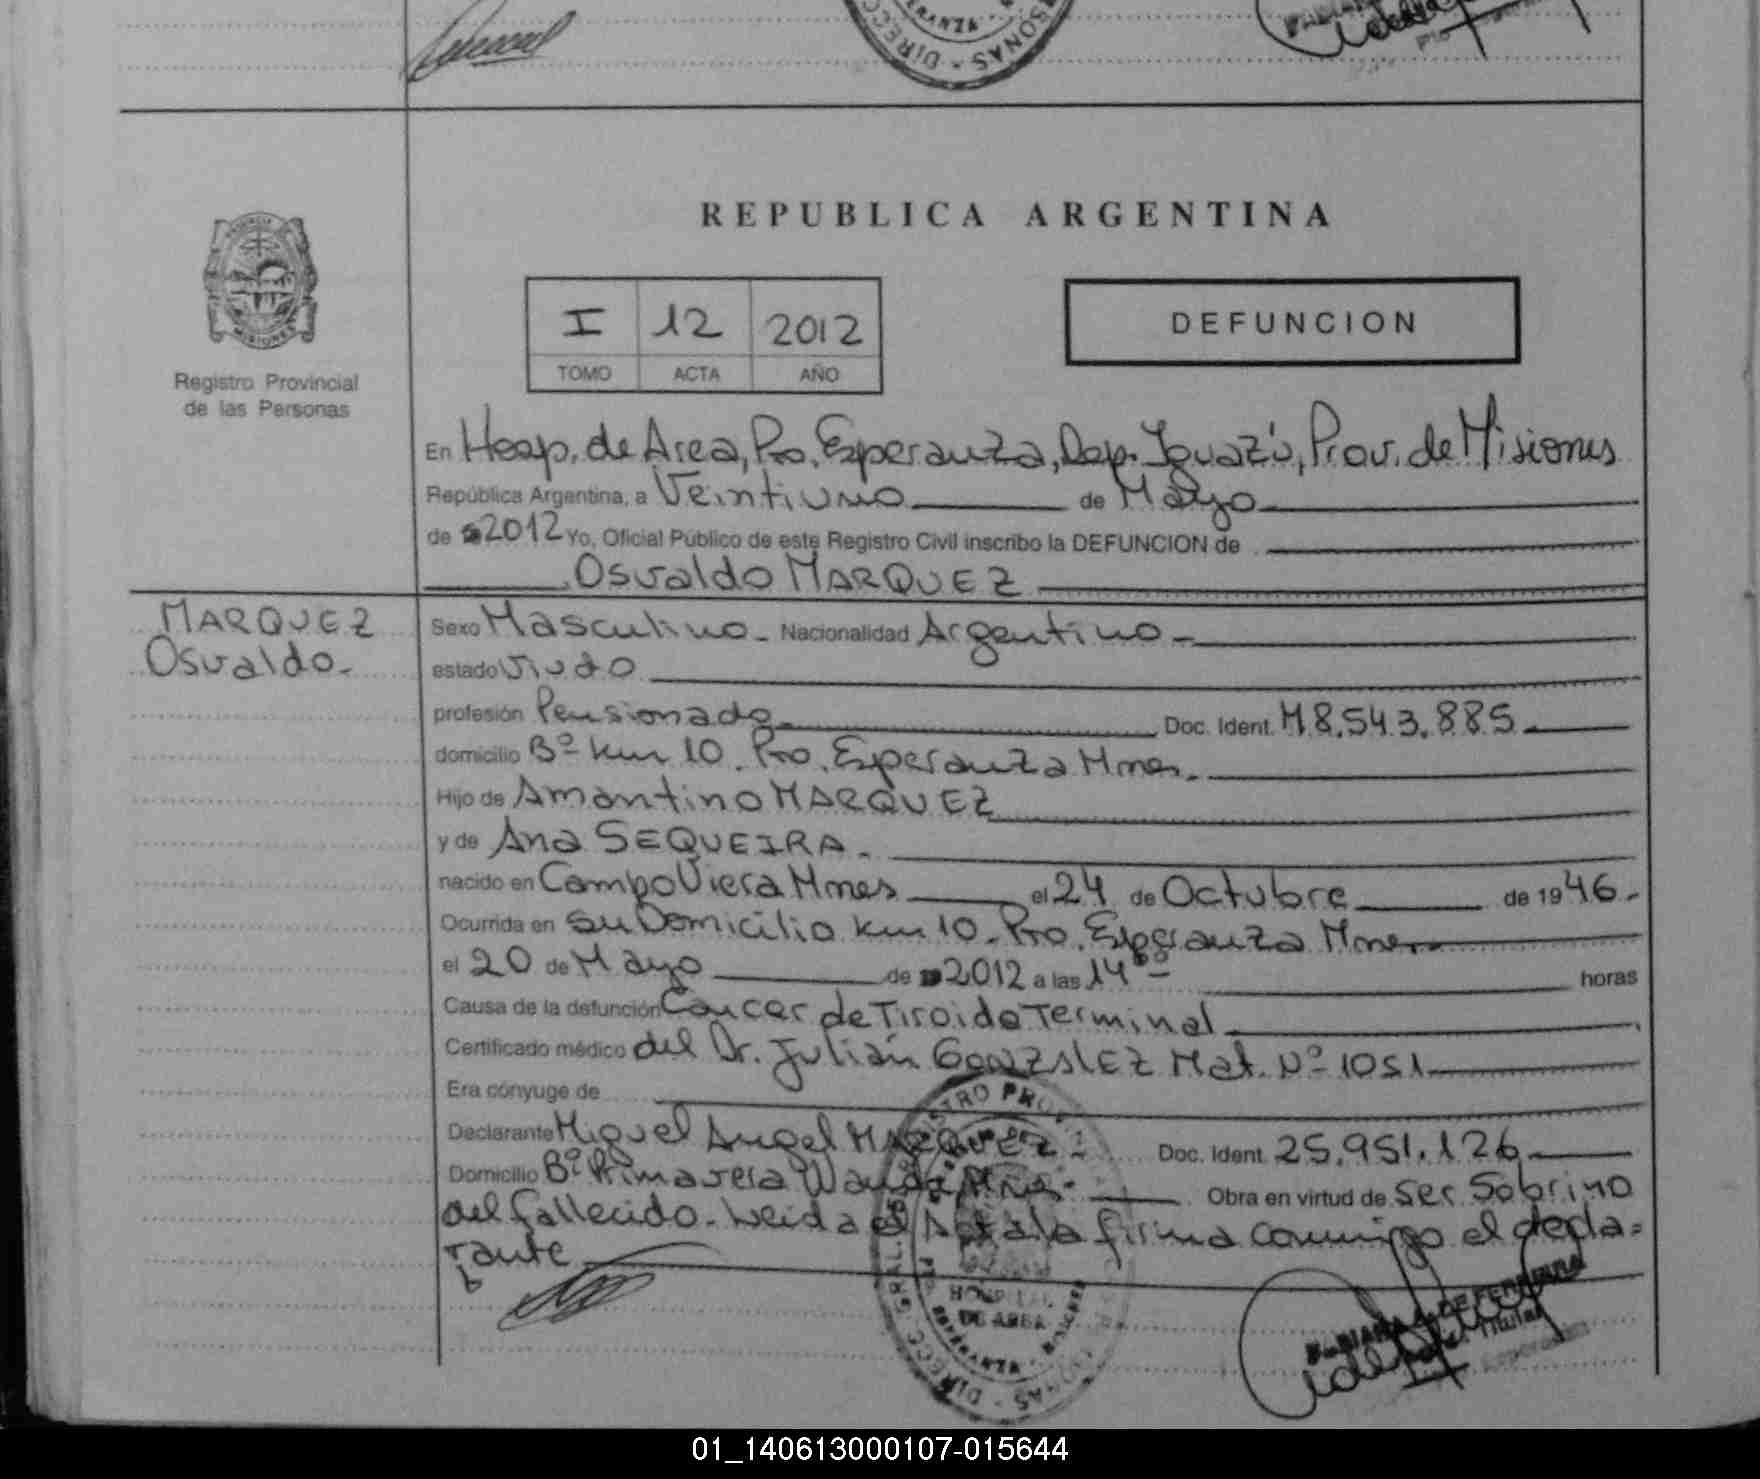 REPUBLICA ARGENTINA
I 12 2012
TOMO ACTA AÑO
DEFUNCION
MISIONES
Registro Provincial
de las Personas
En Hosp. de Area, Pto. Esperanza, Dep. Iguazú, Prov. de Misiones
República Argentina, a Veintiuno de Mayo
de 2012 Yo, Oficial Público de este Registro Civil inscribo la DEFUNCION de
Osvaldo MARQUEZ
MARQUEZ
Osvaldo.
Sexo Masculino. Nacionalidad Argentino.
estado Viudo
profesión Pensionado. Doc. Ident. M8.543.885.
domicilio Bº km 10. Pto. Esperanza Mnes.
Hijo de Amantino MARQUEZ
y de Ana SEQUEIRA.
nacido en Campo Viera Mnes el 24 de Octubre de 1946.
Ocurrida en su Domicilio km 10. Pto. Esperanza Mnes.
el 20 de Mayo de 2012 a las 14 horas
Causa de la defunción Cancer de Tiroide Terminal
Certificado médico del Dr. Julián GONZALEZ Mat. Nº 1051
Era cónyuge de
Declarante Miguel Angel MARQUEZ Doc. Ident. 25.951.126
Domicilio Bº Primavera Wanda Mnes. Obra en virtud de ser Sobrino
del fallecido. Leida el Acta la firma conmigo el decla=
rante
HOSPITAL
DE AREA
01_140613000107-015644